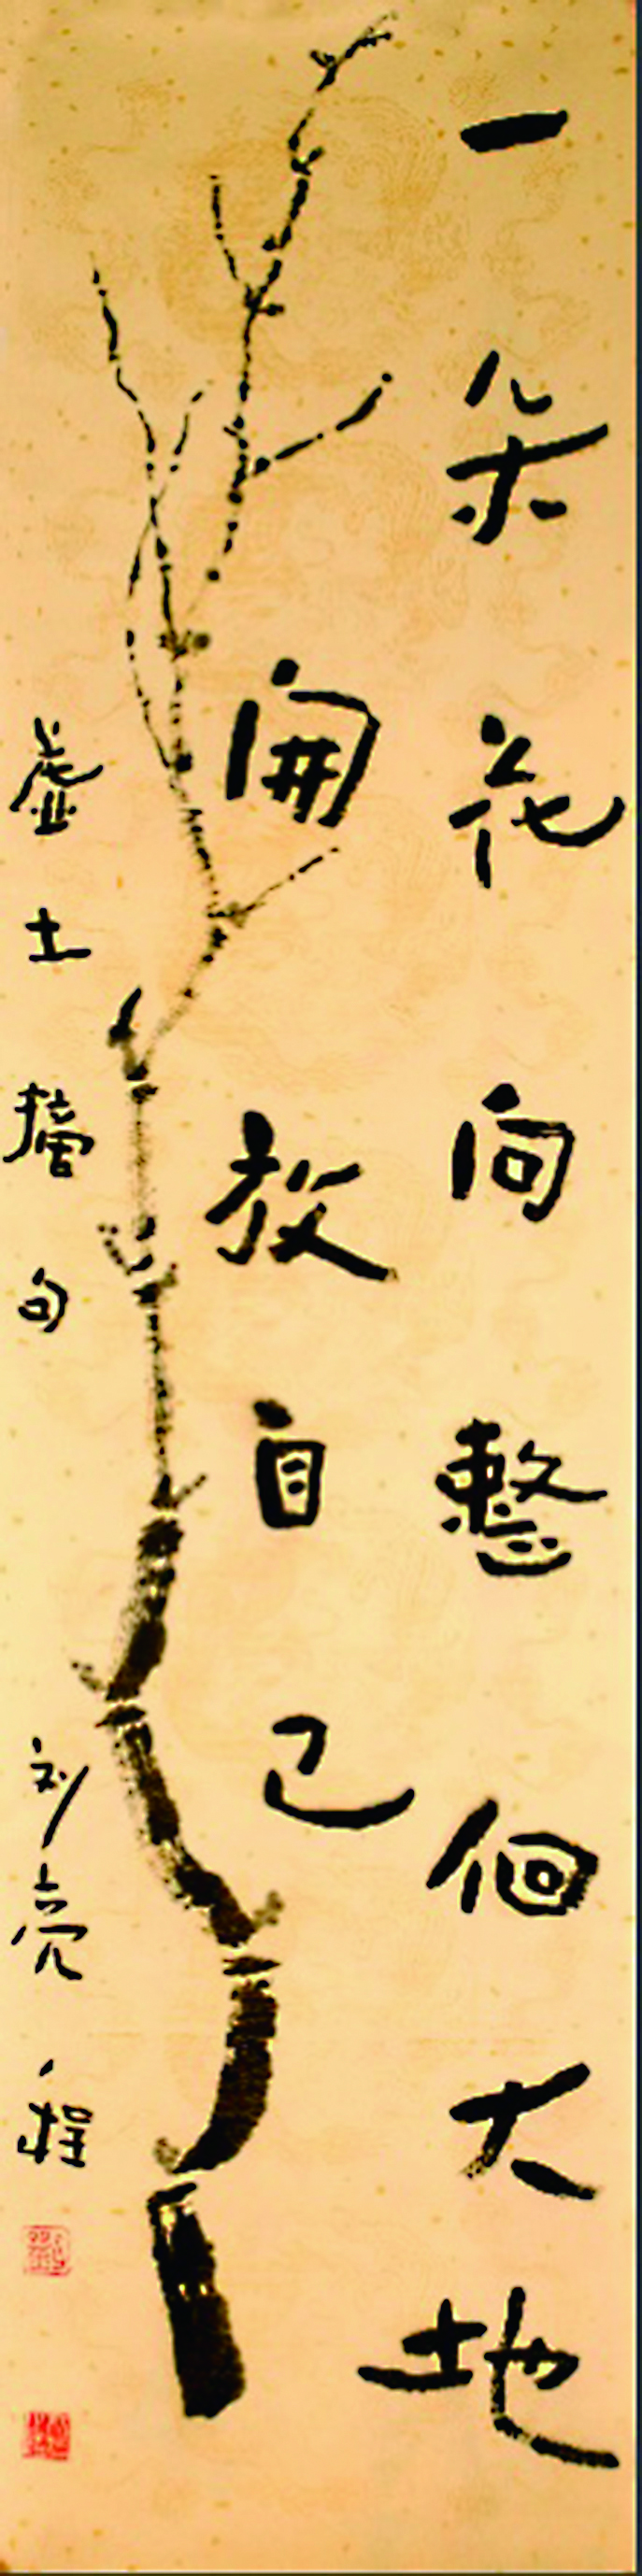 一朵花向整個大地
開放自己
虚土摘句
刘亮程